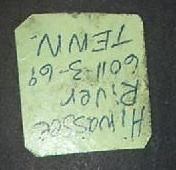 Hiwassee
River
6011-3-69
TENN.